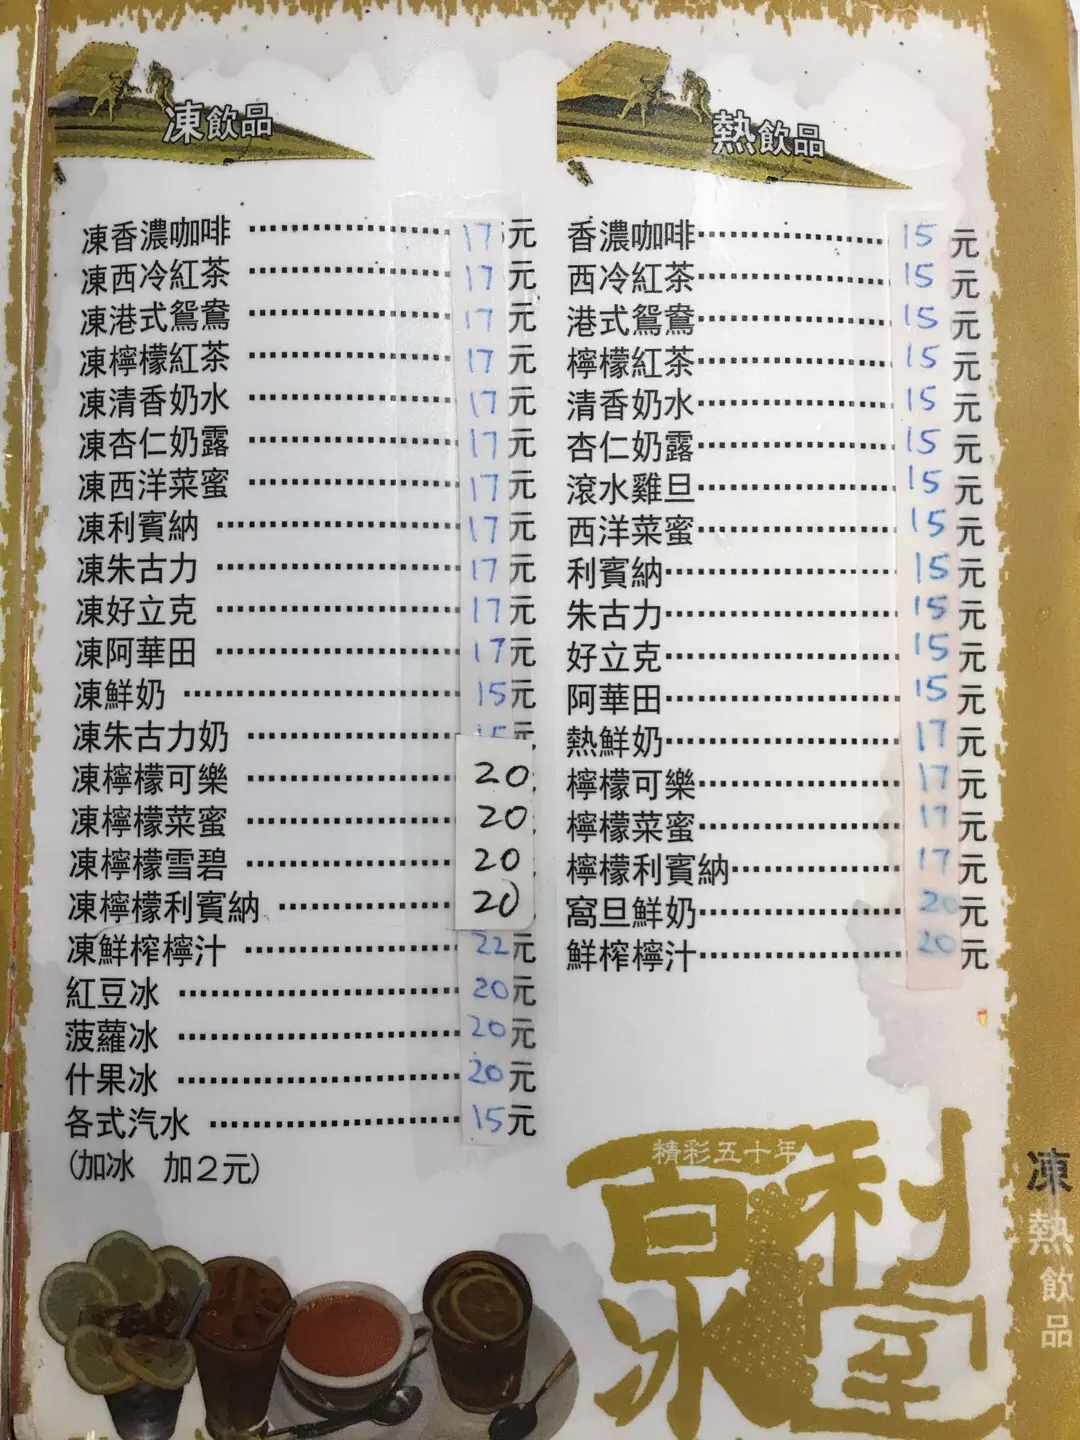 凍飲品
凍香濃咖啡 17元
凍西冷紅茶 17元
凍港式鴛鴦 17元
凍檸檬紅茶 17元
凍清香奶水 17元
凍杏仁奶露 17元
凍西洋菜蜜 17元
凍利賓納 17元
凍朱古力 17元
凍好立克 17元
凍阿華田 17元
凍鮮奶 15元
凍朱古力奶 15元
凍檸檬可樂 20
凍檸檬菜蜜 20
凍檸檬雪碧 20
凍檸檬利賓納 20
凍鮮榨檸汁 22元
紅豆冰 20元
菠蘿冰 20元
什果冰 20元
各式汽水 15元
(加冰 加2元)
熱飲品
香濃咖啡 15元
西冷紅茶 15元
港式鴛鴦 15元
檸檬紅茶 15元
清香奶水 15元
杏仁奶露 15元
滾水雞旦 15元
西洋菜蜜 15元
利賓納 15元
朱古力 15元
好立克 15元
阿華田 15元
熱鮮奶 17元
檸檬可樂 17元
檸檬菜蜜 17元
檸檬利賓納 17元
窩旦鮮奶 20元
鮮榨檸汁 20元
精彩五十年
百利冰室
凍熱飲品